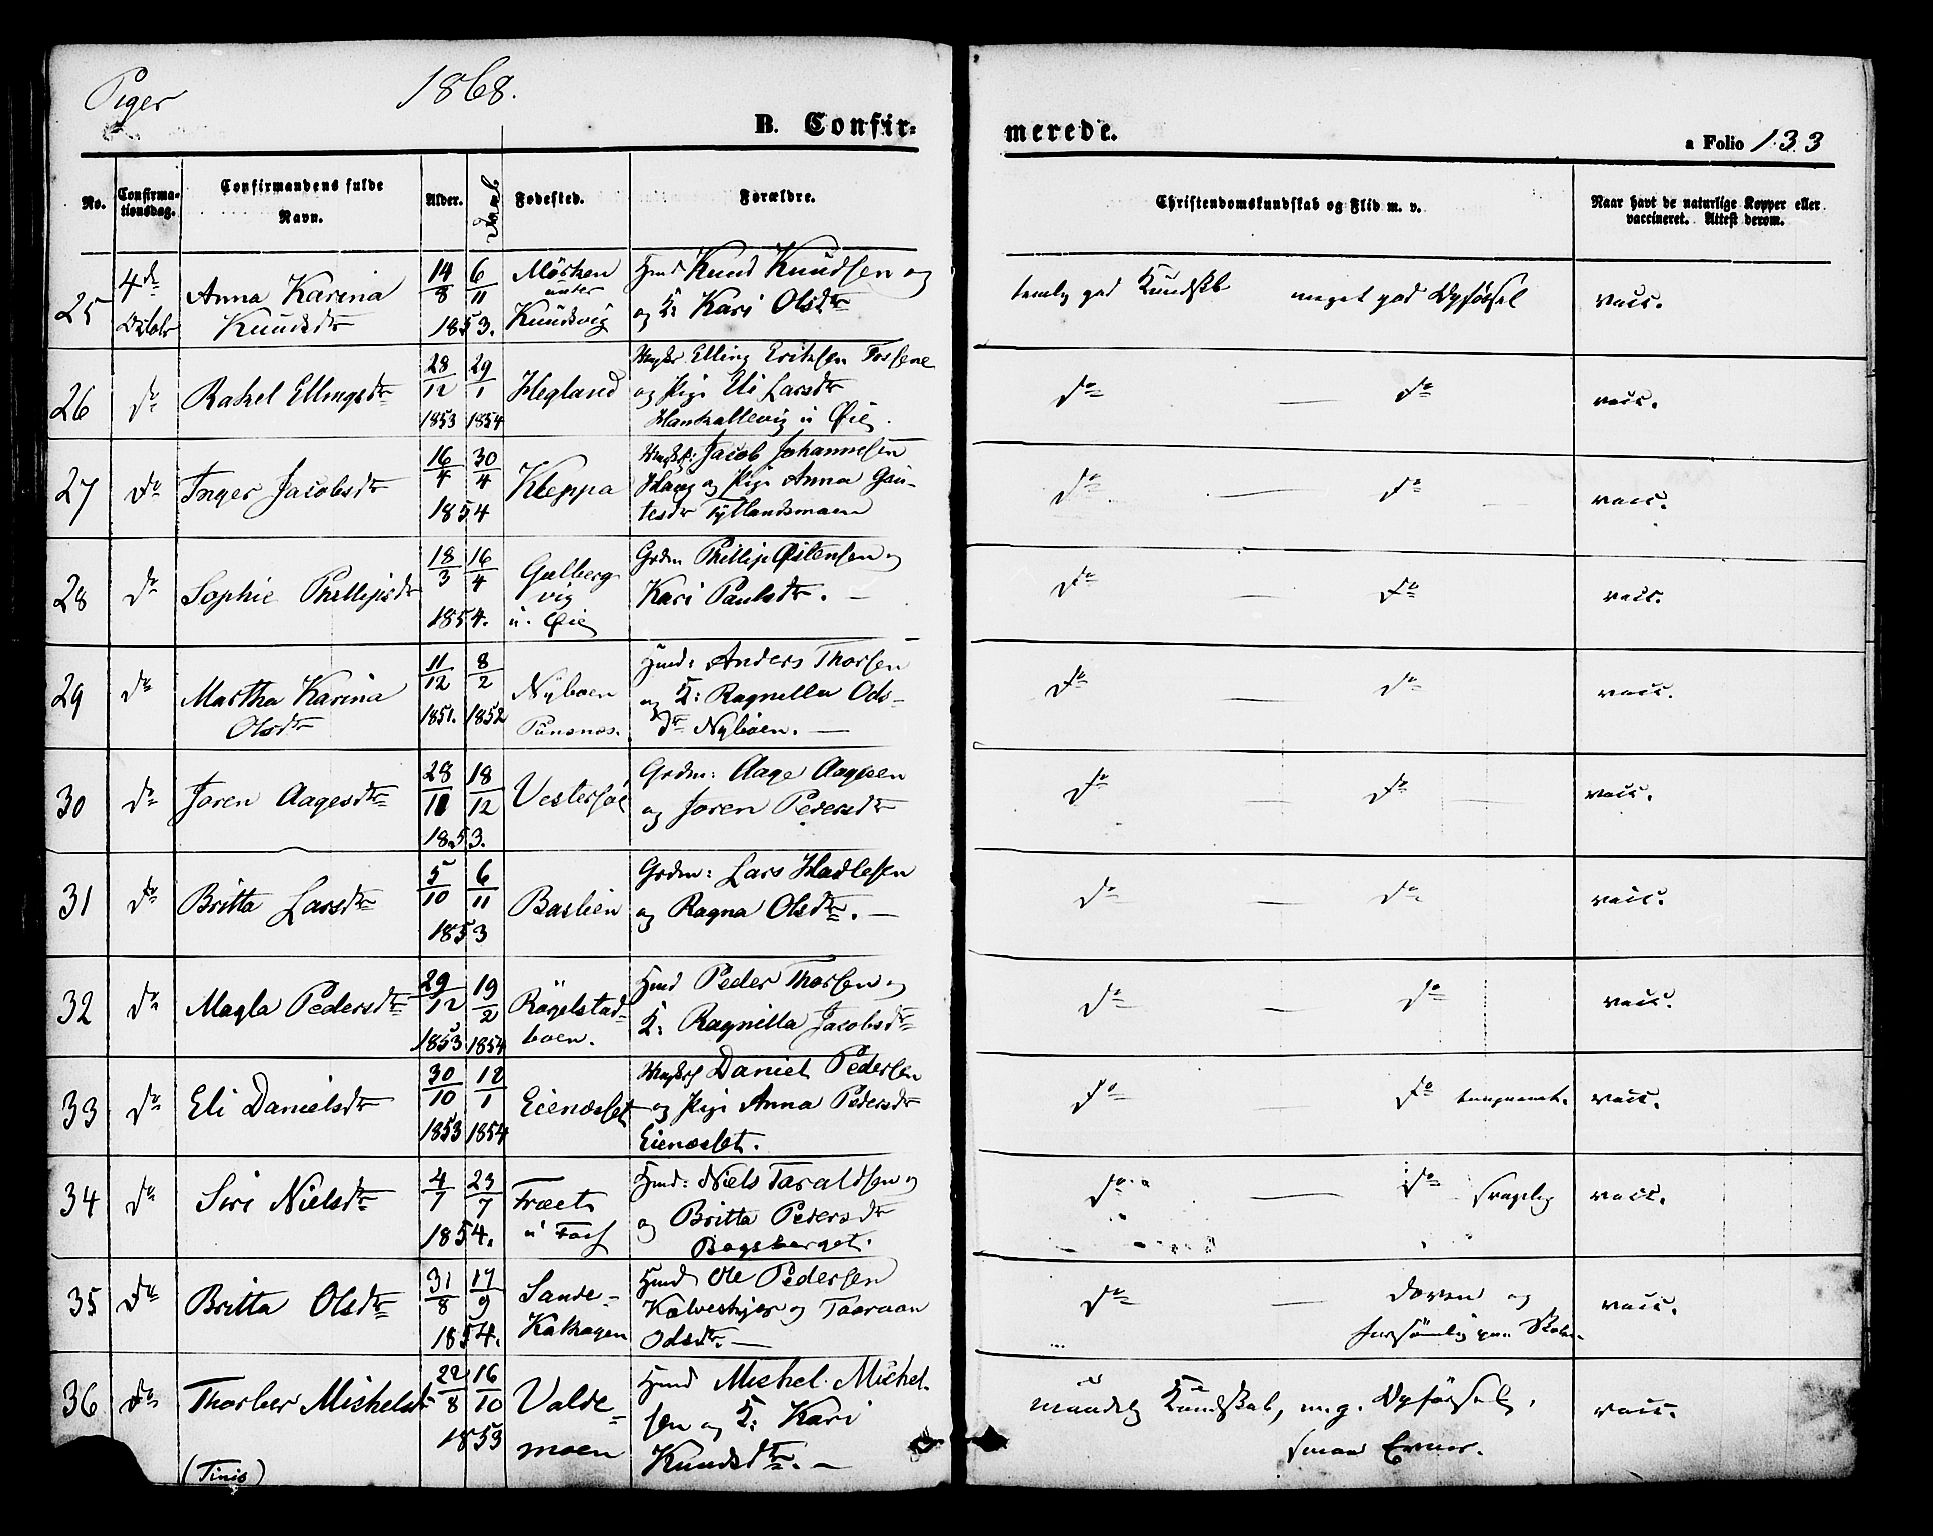 Piger 1868.
B. Confirmerede.
a Folio 133
No. Confirmationsdag. Confirmandens fulde Navn. Alder. Daab Fødested. Forældre. Christendomskundskab og Flid m. v. Naar havt de naturlige Kopper eller vaccineret. Attest derom.
25 4de Octobr Anna Karina Knudsdtr 14/8 6/11 1853. Mörken under Knudsvig Huusmd Knud Knudsen og og K: Kari Olsdtr temlig god Kundskb meget god Opførsel vacc.
26 do Rakel Ellingsdtr 28/12 1853 29/1 1854 Hegland Elling Eriksen Fossene og Pige Eli Larsdtr u Øie. do — do vacc.
27 do Inger Jacobsdtr 16/4 30/4 1854 Kleppa Jacob Johannesen Haug og Pige Anna Gautesdtr Tytlandsmoen do do vacc.
28 do Sophie Phillipsdtr 18/3 16/4 1854. Gulbergvig u. Øie Grdm Phillip Østensen og Kari Paulsdtr. — do — do vacc.
29 do Martha Karina Olsdtr 11/12 1851. 8/2 1852 Nyboen Husmd: Anders Thorsen og K: Ragnilla Odsdtr Nyboen. — do — do vacc.
30 do Joren Aagesdtr 28/10 18/12 1853. Grdm: Aage Aagesen og Joren Pedersdtr do — do — vacc.
31 do Britta Larsdtr 5/10 6/11 1853 Baslien Grdm: Lars Hadlesen og Ragna Olsdtr. — do — do vacc.
32 do Magla Pedersdtr 29/12 1853 19/2 1854 Rögelstadboen. Husmd Peder Thorsen og K: Ragnilla Jacobsdtr do — do vacc.
33 do Eli Danielsdtr 30/10 1853 12/1 1854 Eienæsset Daniel Pedersen og Pige Anna Pedersdtr Eienæsset. do do tungnemt. vacc.
34 do Siri Nielsdtr 4/7 23/7 1854. Fræet u Foss Husmd: Niels Taraldsen og og Britta Pedersdtr Bogsberget. do — do svagelig vacc.
35 do Britta Olsdtr 31/8 17/9 1854. Sande- Kalhagen Husmd Ole Pedersen Kalveskjær og Taaraan Odsdtr. — do — doven og forsömlig paa Skolen vacc.
36 do Thorber Michelsdtr 22/8 16/10 1853 Valdemoen Husmd Michel Michelsen og K: Kari Knudsdtr. — maadelig Kundskab, m. g. Opførsel, smaa Evner. vacc.